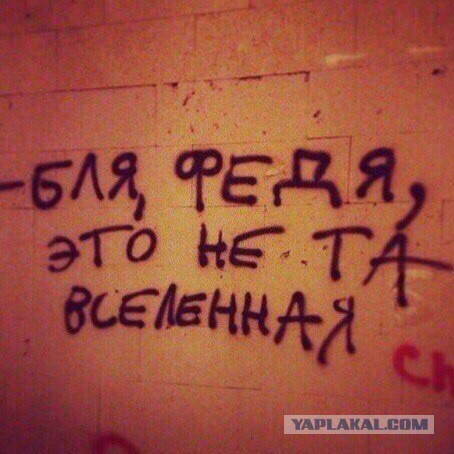 -БЛЯ, ФЕДЯ,
ЭТО НЕ ТА
ВСЕЛЕННАЯ
YAPLAKAL.COM